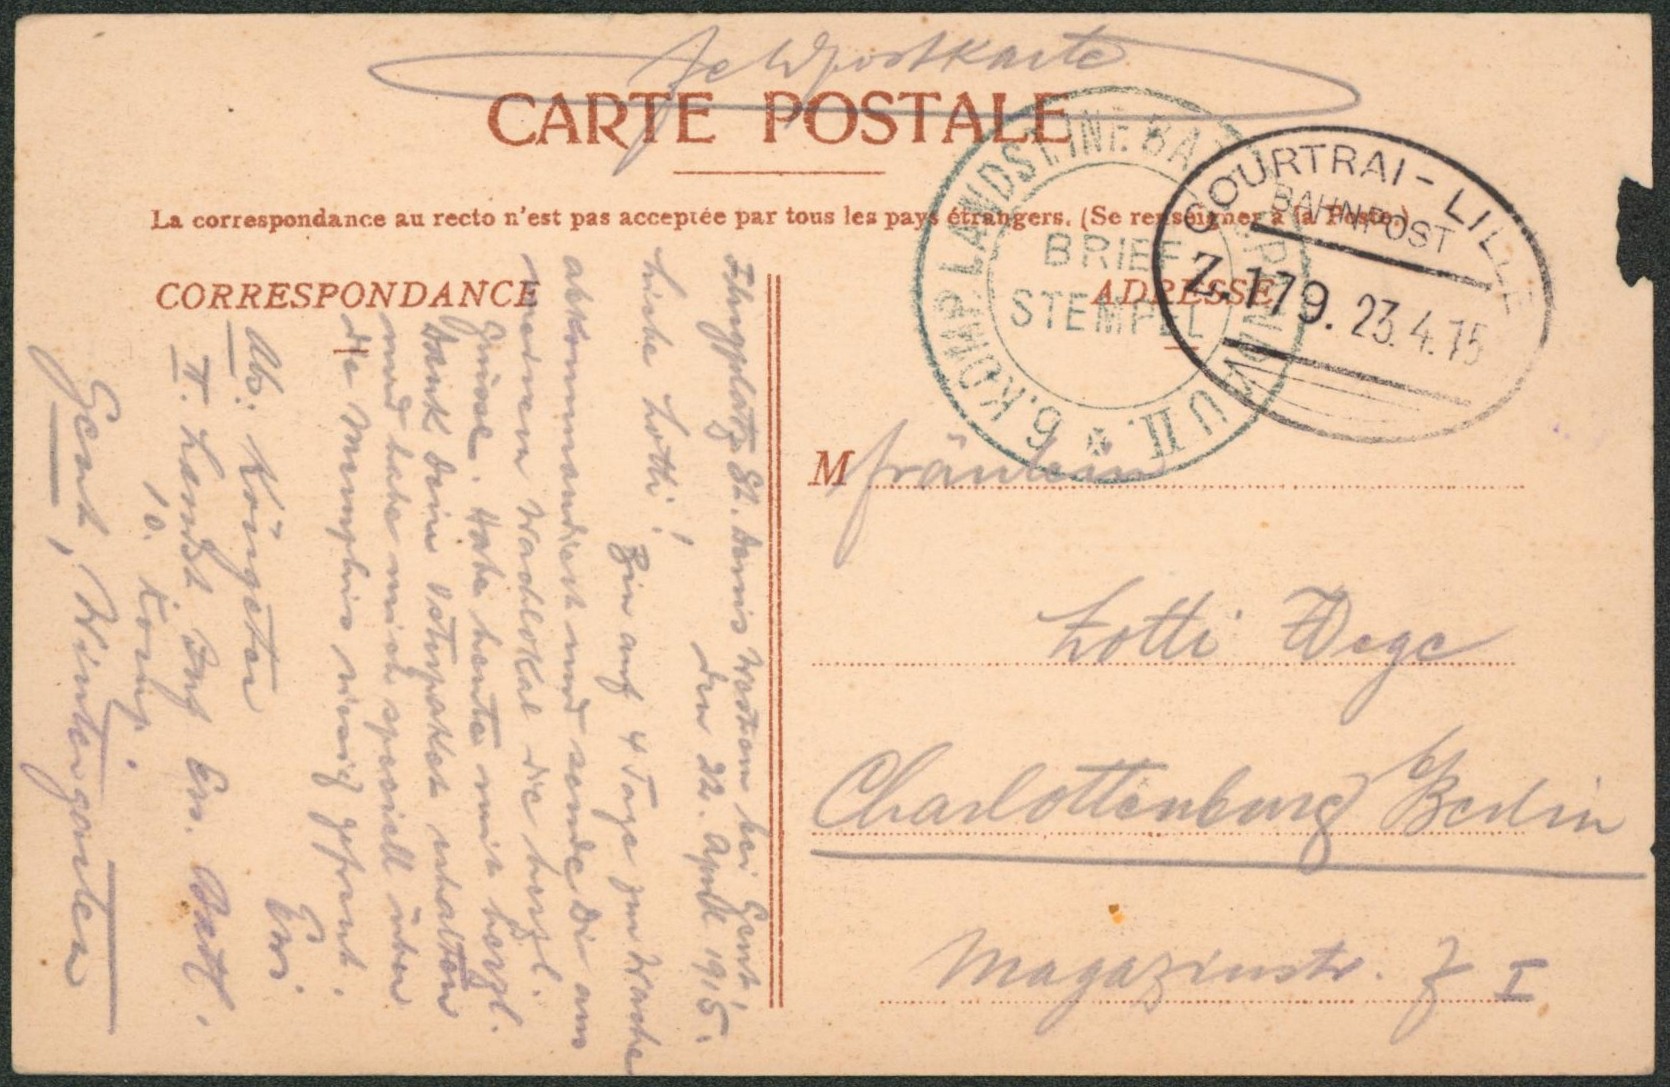 Feldpostkarte
CARTE POSTALE
La correspondance au recto n'est pas acceptée par tous les pays étrangers. (Se renseigner à la Poste.)
CORRESPONDANCE
ADRESSE
6. KOMP. LANDST. INF. BAT. SPANDAU II.
BRIEF
STEMPEL
COURTRAI - LILLE
BAHNPOST
Z. 179. 23.4.15
Flugplatz St. Denis Westrem bei Gent,
den 22. April 1915.
Liebe Lotti!
Bin auf 4 Tage zur Wache
abkommandiert und sende Dir aus
meinem Wachlokal die herzl.
Grüsse. Habe heute mit herzl.
Dank Dein Osterpaket erhalten
und habe mich speciell über
die Memphis riesig gefreut.
Abs. Köngeter
II. Landst Inf Ers. Batl.
10. Komp.
Gent, Wintergarten
M Fräulein
Lotti Wege
Charlottenburg b/Berlin
Magazinstr. I